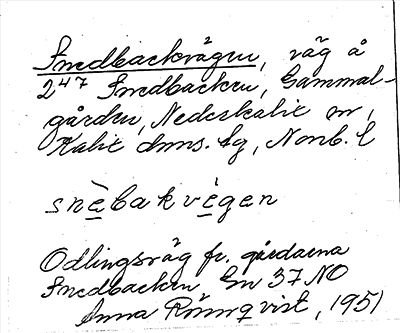 Smedbackvägen, väg å
2⁴⁷ Smedbacken, Gammal-
gården, Nederkalix sn,
Kalix dnns. tg, Norrb. l
snèbakvègen
Odlingsväg fr. gårdarna
Smedbacken, En 37 NO
Anna Rönnqvist, 1951